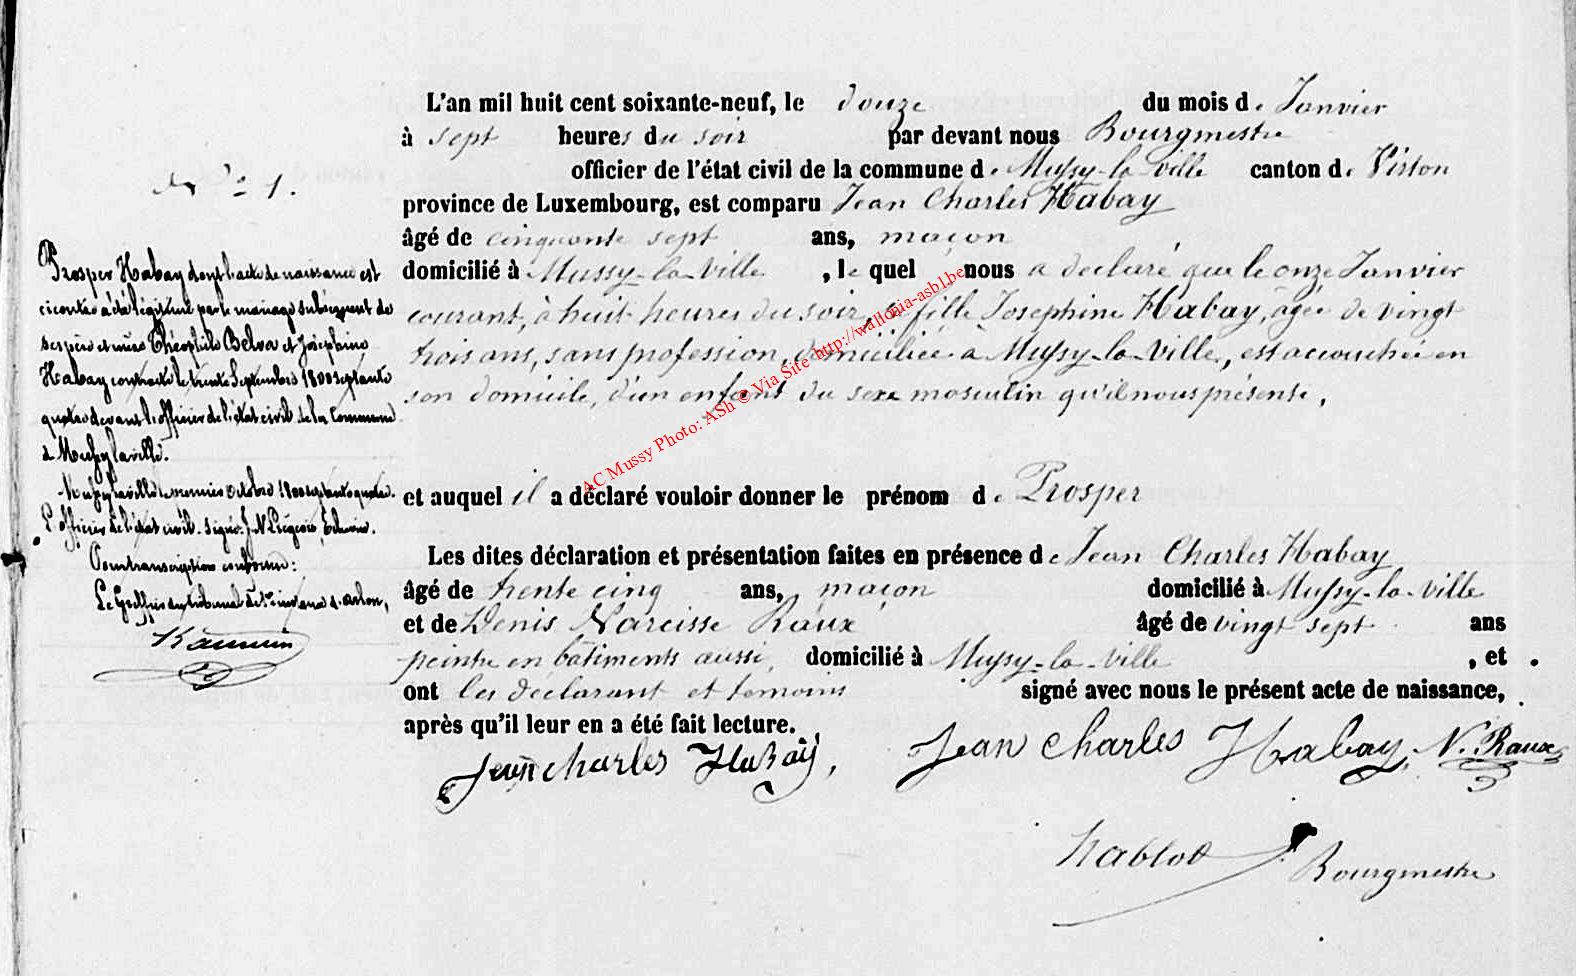 N° 1.
Prosper Habay dont l'acte de naissance est
cicontre a été légitimé par le mariage subséquent de
ses père et mère Théophile Belva et Joséphine
Habay contracté le trente Septembre 1800 septante
quatre devant l'officier de l'état civil de la Commune
de Mussy la ville.
Mussy la ville le premier Octobre 1800 septante quatre.
L'officier de l'état civil. signé: J. N.
Pour transcription conforme:
Le Greffier du tribunal de 1re instance d'arlon,
L'an mil huit cent soixante-neuf, le douze du mois de Janvier
à sept heures du soir par devant nous Bourgmestre
officier de l'état civil de la commune de Mussy-la-Ville canton de Virton
province de Luxembourg, est comparu Jean Charles Habay
âgé de cinquante sept ans, maçon
domicilié à Mussy-la-Ville, lequel nous a déclaré que le onze Janvier
courant, à huit heures du soir, sa fille Josephine Habay, âgée de vingt
trois ans, sans profession, domiciliée à Mussy-la-Ville, est accouchée en
son domicile, d'un enfant du sexe masculin qu'il nous présente,
et auquel il a déclaré vouloir donner le prénom de Prosper
Les dites déclaration et présentation faites en présence de Jean Charles Habay
âgé de trente cinq ans, maçon domicilié à Mussy-la-Ville
et de Denis Narcisse Raux âgé de vingt sept ans
peintre en bâtiments aussi, domicilié à Mussy-la-Ville, et
ont les déclarant et temoins signé avec nous le présent acte de naissance,
après qu'il leur en a été fait lecture.
Jean charles Habay, Jean Charles Habay, N. Raux
Hablot Bourgmestre
AC Mussy Photo: ASh © Via Site http://wallonia-asbl.be